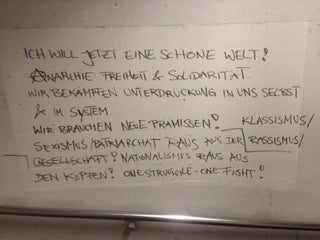 ICH WILL JETZT EINE SCHÖNE WELT!
ANARCHIE FREIHEIT & SOLIDARITÄT.
WIR BEKÄMPFEN UNTERDRÜCKUNG IN UNS SELBST
& IM SYSTEM.
WIR BRAUCHEN NEUE PRÄMISSEN! KLASSISMUS/
SEXISMUS/PATRIARCHAT RAUS AUS DER RASSISMUS/
GESELLSCHAFT! NATIONALISMUS RAUS AUS
DEN KÖPFEN! ONE STRUGGLE-ONE FIGHT!